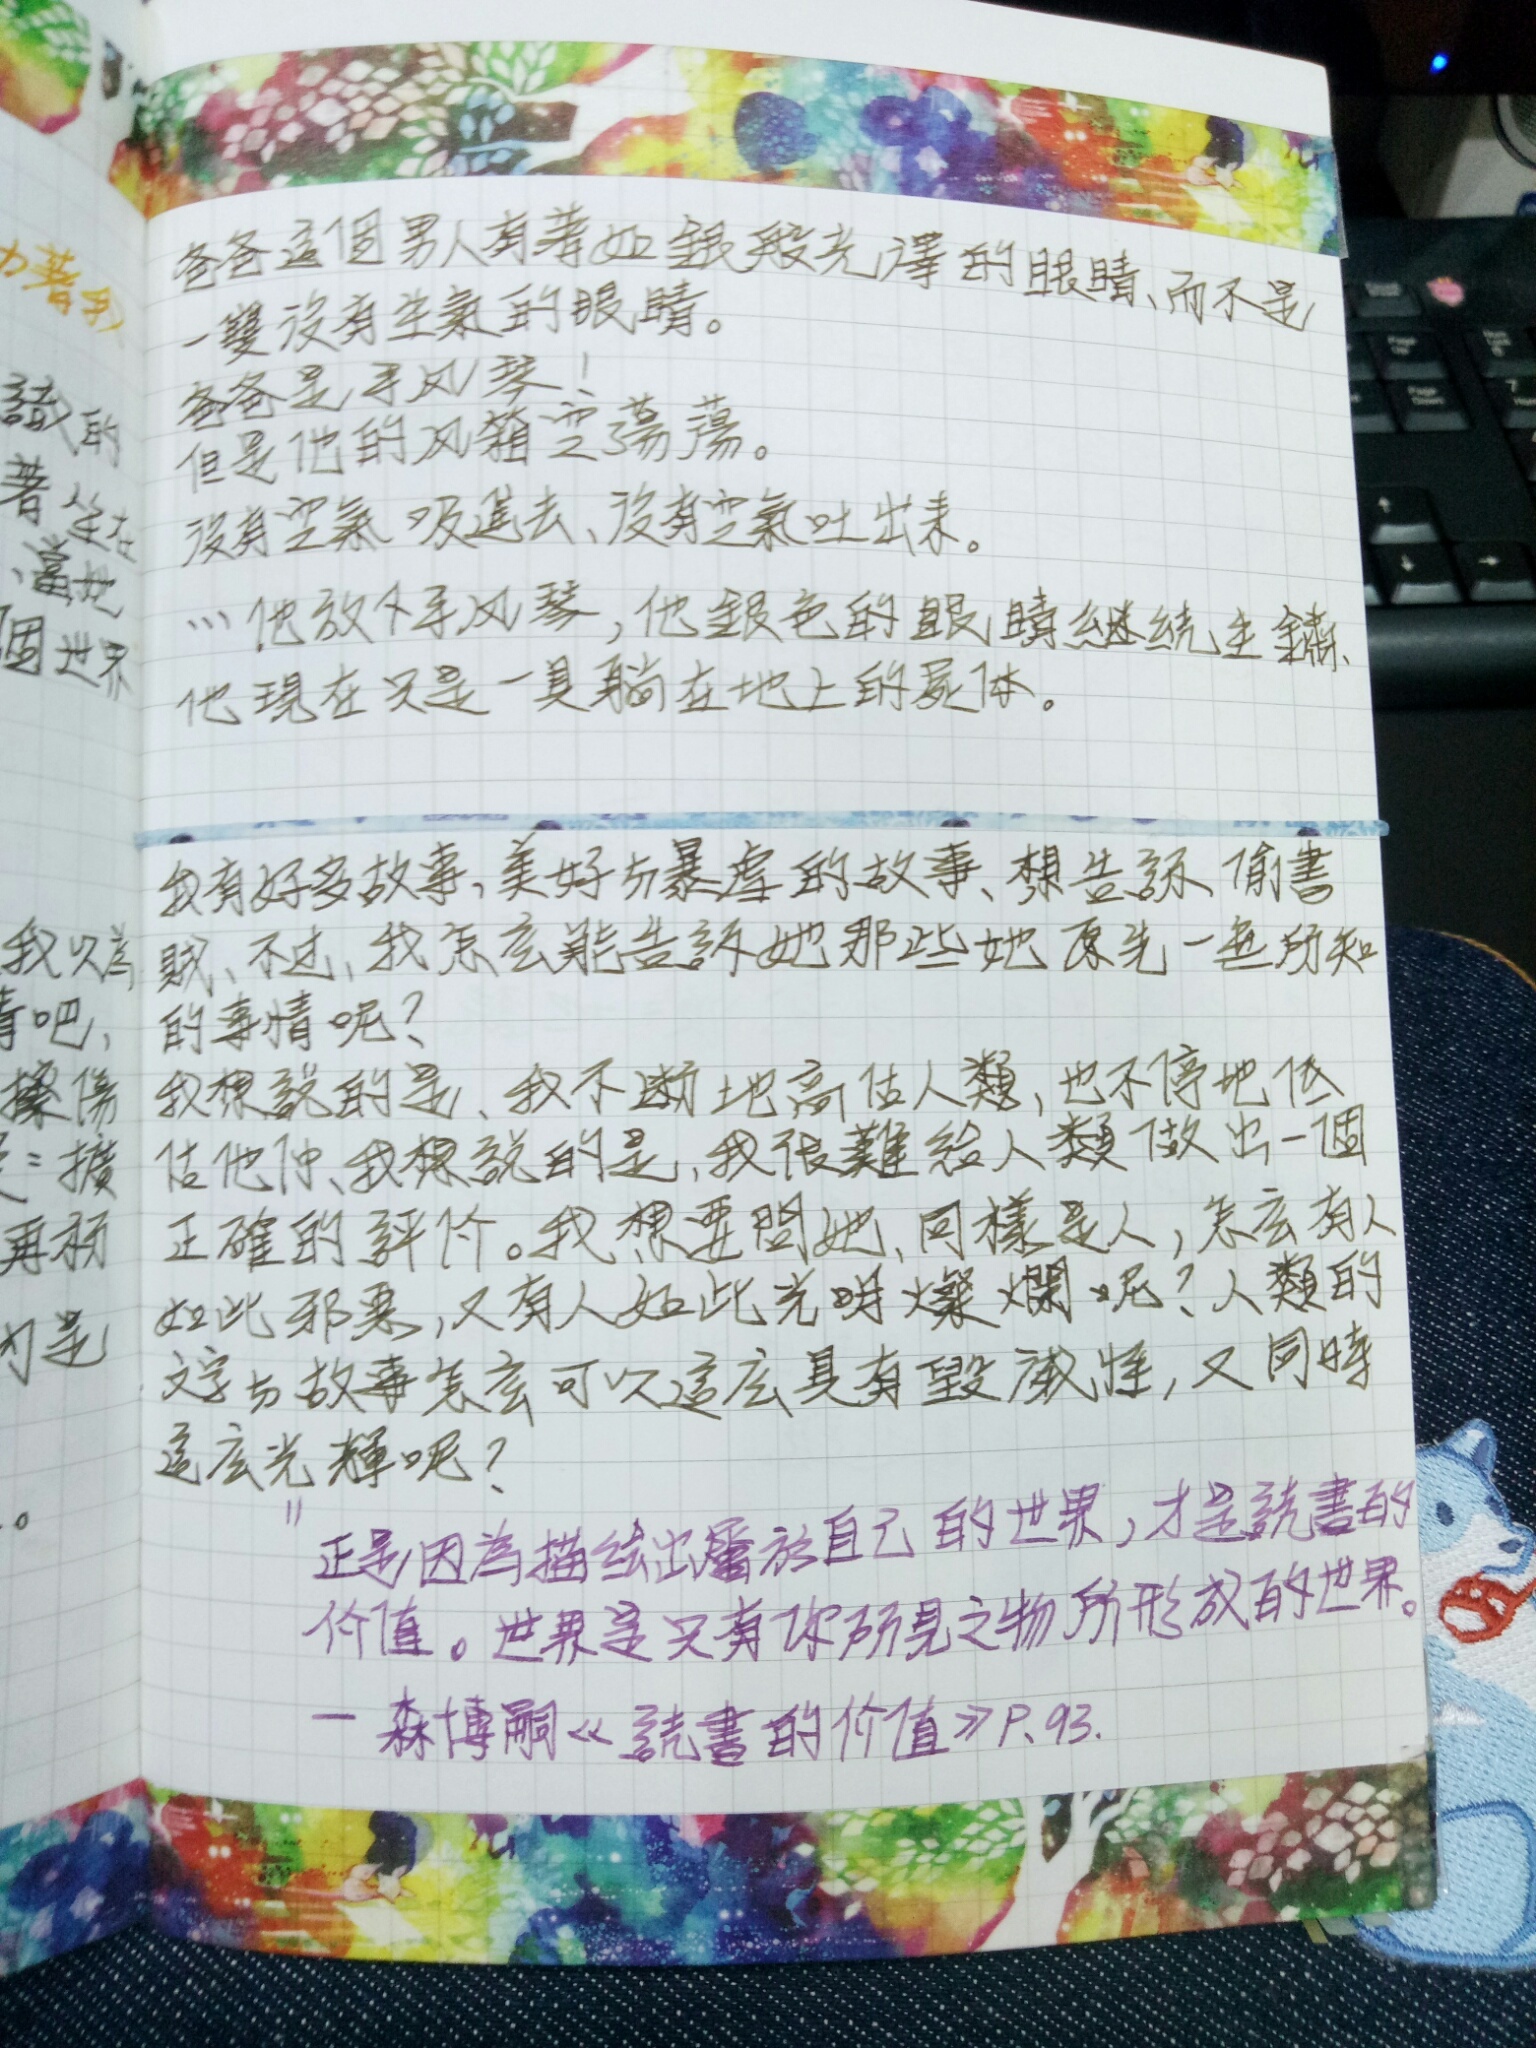 力著
的
著坐在
當我
個世界
我以為
情吧,
再
是
爸爸這個男人有著如銀般光澤的眼睛、而不是
一雙没有生氣的眼睛。
爸爸是手风琴!
但是他的风箱空蕩蕩。
没有空氣吸進去、没有空氣吐出来。
…他放下手风琴,他銀色的眼睛継続生鏽、
他現在只是一具躺在地上的屍体。
我有好多故事、美好与暴虐的故事、想告訴偷書
賊、不过、我怎広能告訴她那些她原先一無所知
的事情呢?
我想說的是、我不断地高估人類,也不停地低
估他们、我想說的是,我很難給人類做出一個
正確的評价。我想要問她、同樣是人,怎広有人
如此邪悪,又有人如此光明燦爛呢?人類的
文字与故事怎広可以這広具有毀滅性,又同時
這広光輝呢?
"正是因為描绘出屬於自己的世界,才是読書的
价值。世界是只有你所見之物所形成的世界。
— 森博嗣《読書的价值》P.93.